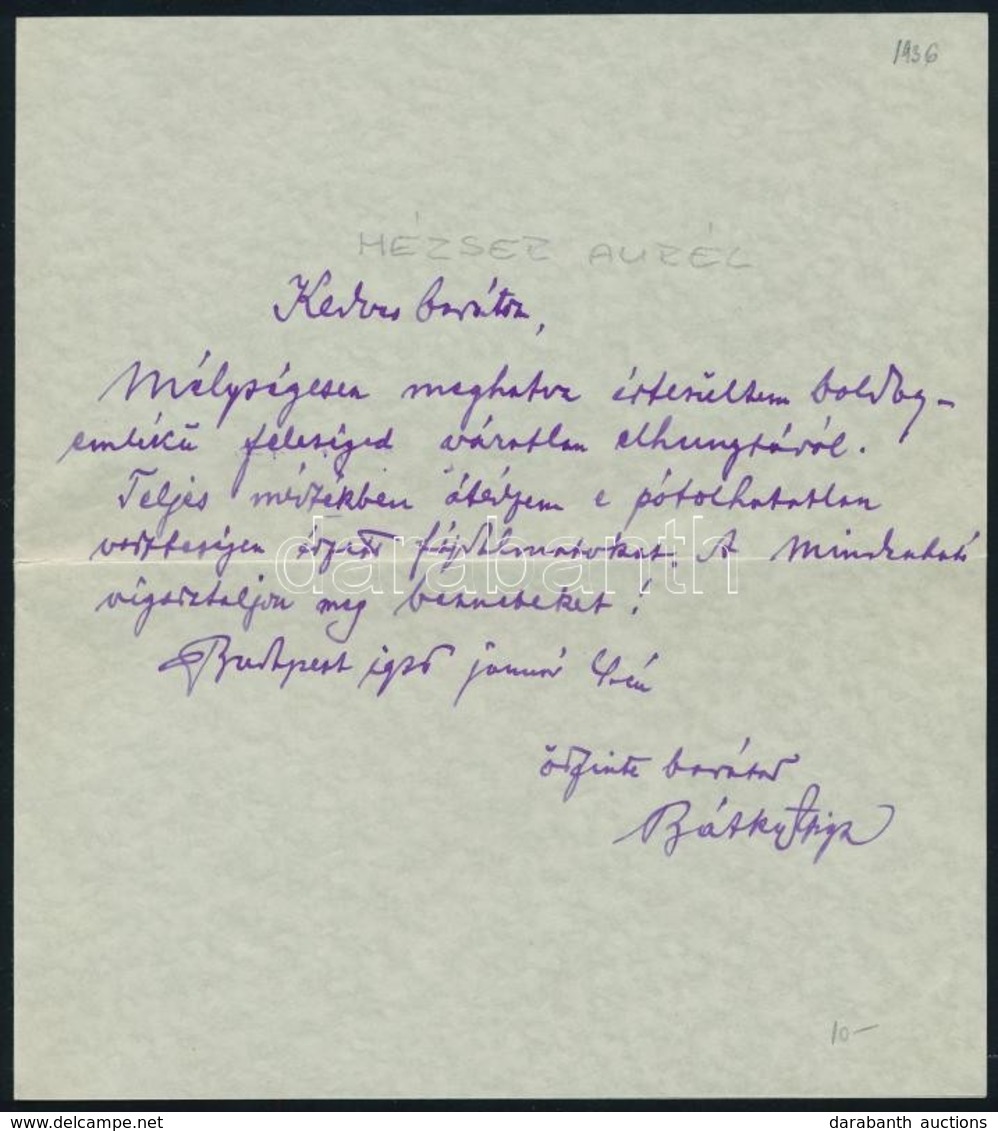 1936
HÉZSER AURÉL
Kedves barátom,
Mélységesen meghatva értesültem boldog-
emlékű feleséged váratlan elhunytáról.
Teljes mértékben átérzem e pótolhatatlan
veszteségen érzett fájdalmatokat. A Mindenható
vigasztaljon meg benneteket!
Budapest 1936 január
őszinte barátod
Bátky Zsigm
10-
darabanth
delcampe.net
darabanth auctions